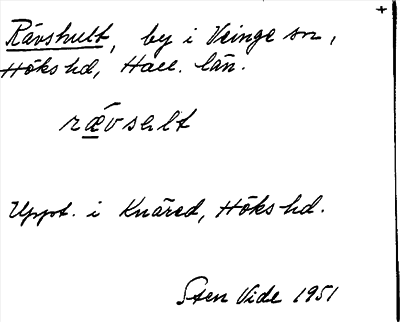 +
Rävshult, by i Veinge sn,
Höks hd, Hall. län.
rævsəlt
Uppt. i Knäred, Höks hd.
Sten Vide 1951